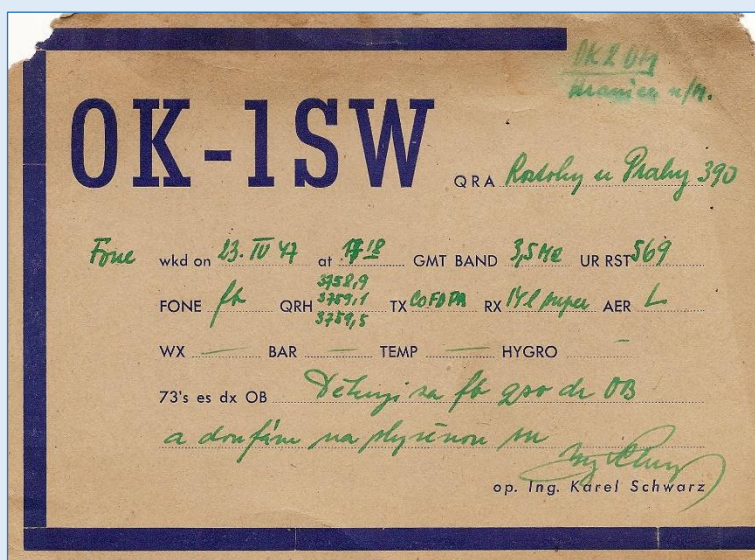 OK2
Hranice n/M.
OK-1SW
QRA Roztoky u Prahy 390
Fone wkd on 23. IV 47 at 17 18 GMT BAND 3,5 Mc UR RST 569
3758,9
FONE fb QRH 3759,1 TX CO FD PA RX 14 l super AER L
3759,5
WX — BAR — TEMP — HYGRO –
73's es dx OB Děkuji za fb qso dr OB
a doufám na slyšenou
op. Ing. Karel Schwarz